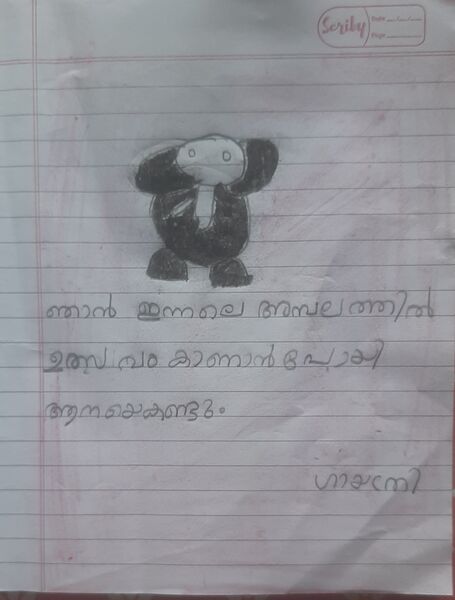 Scriby
Date
Page
ഞാൻ ഇന്നലെ അമ്പലത്തിൽ
ഉത്സവം കാണാൻ പോയി
ആനയെകണ്ടും
ഗായത്രി